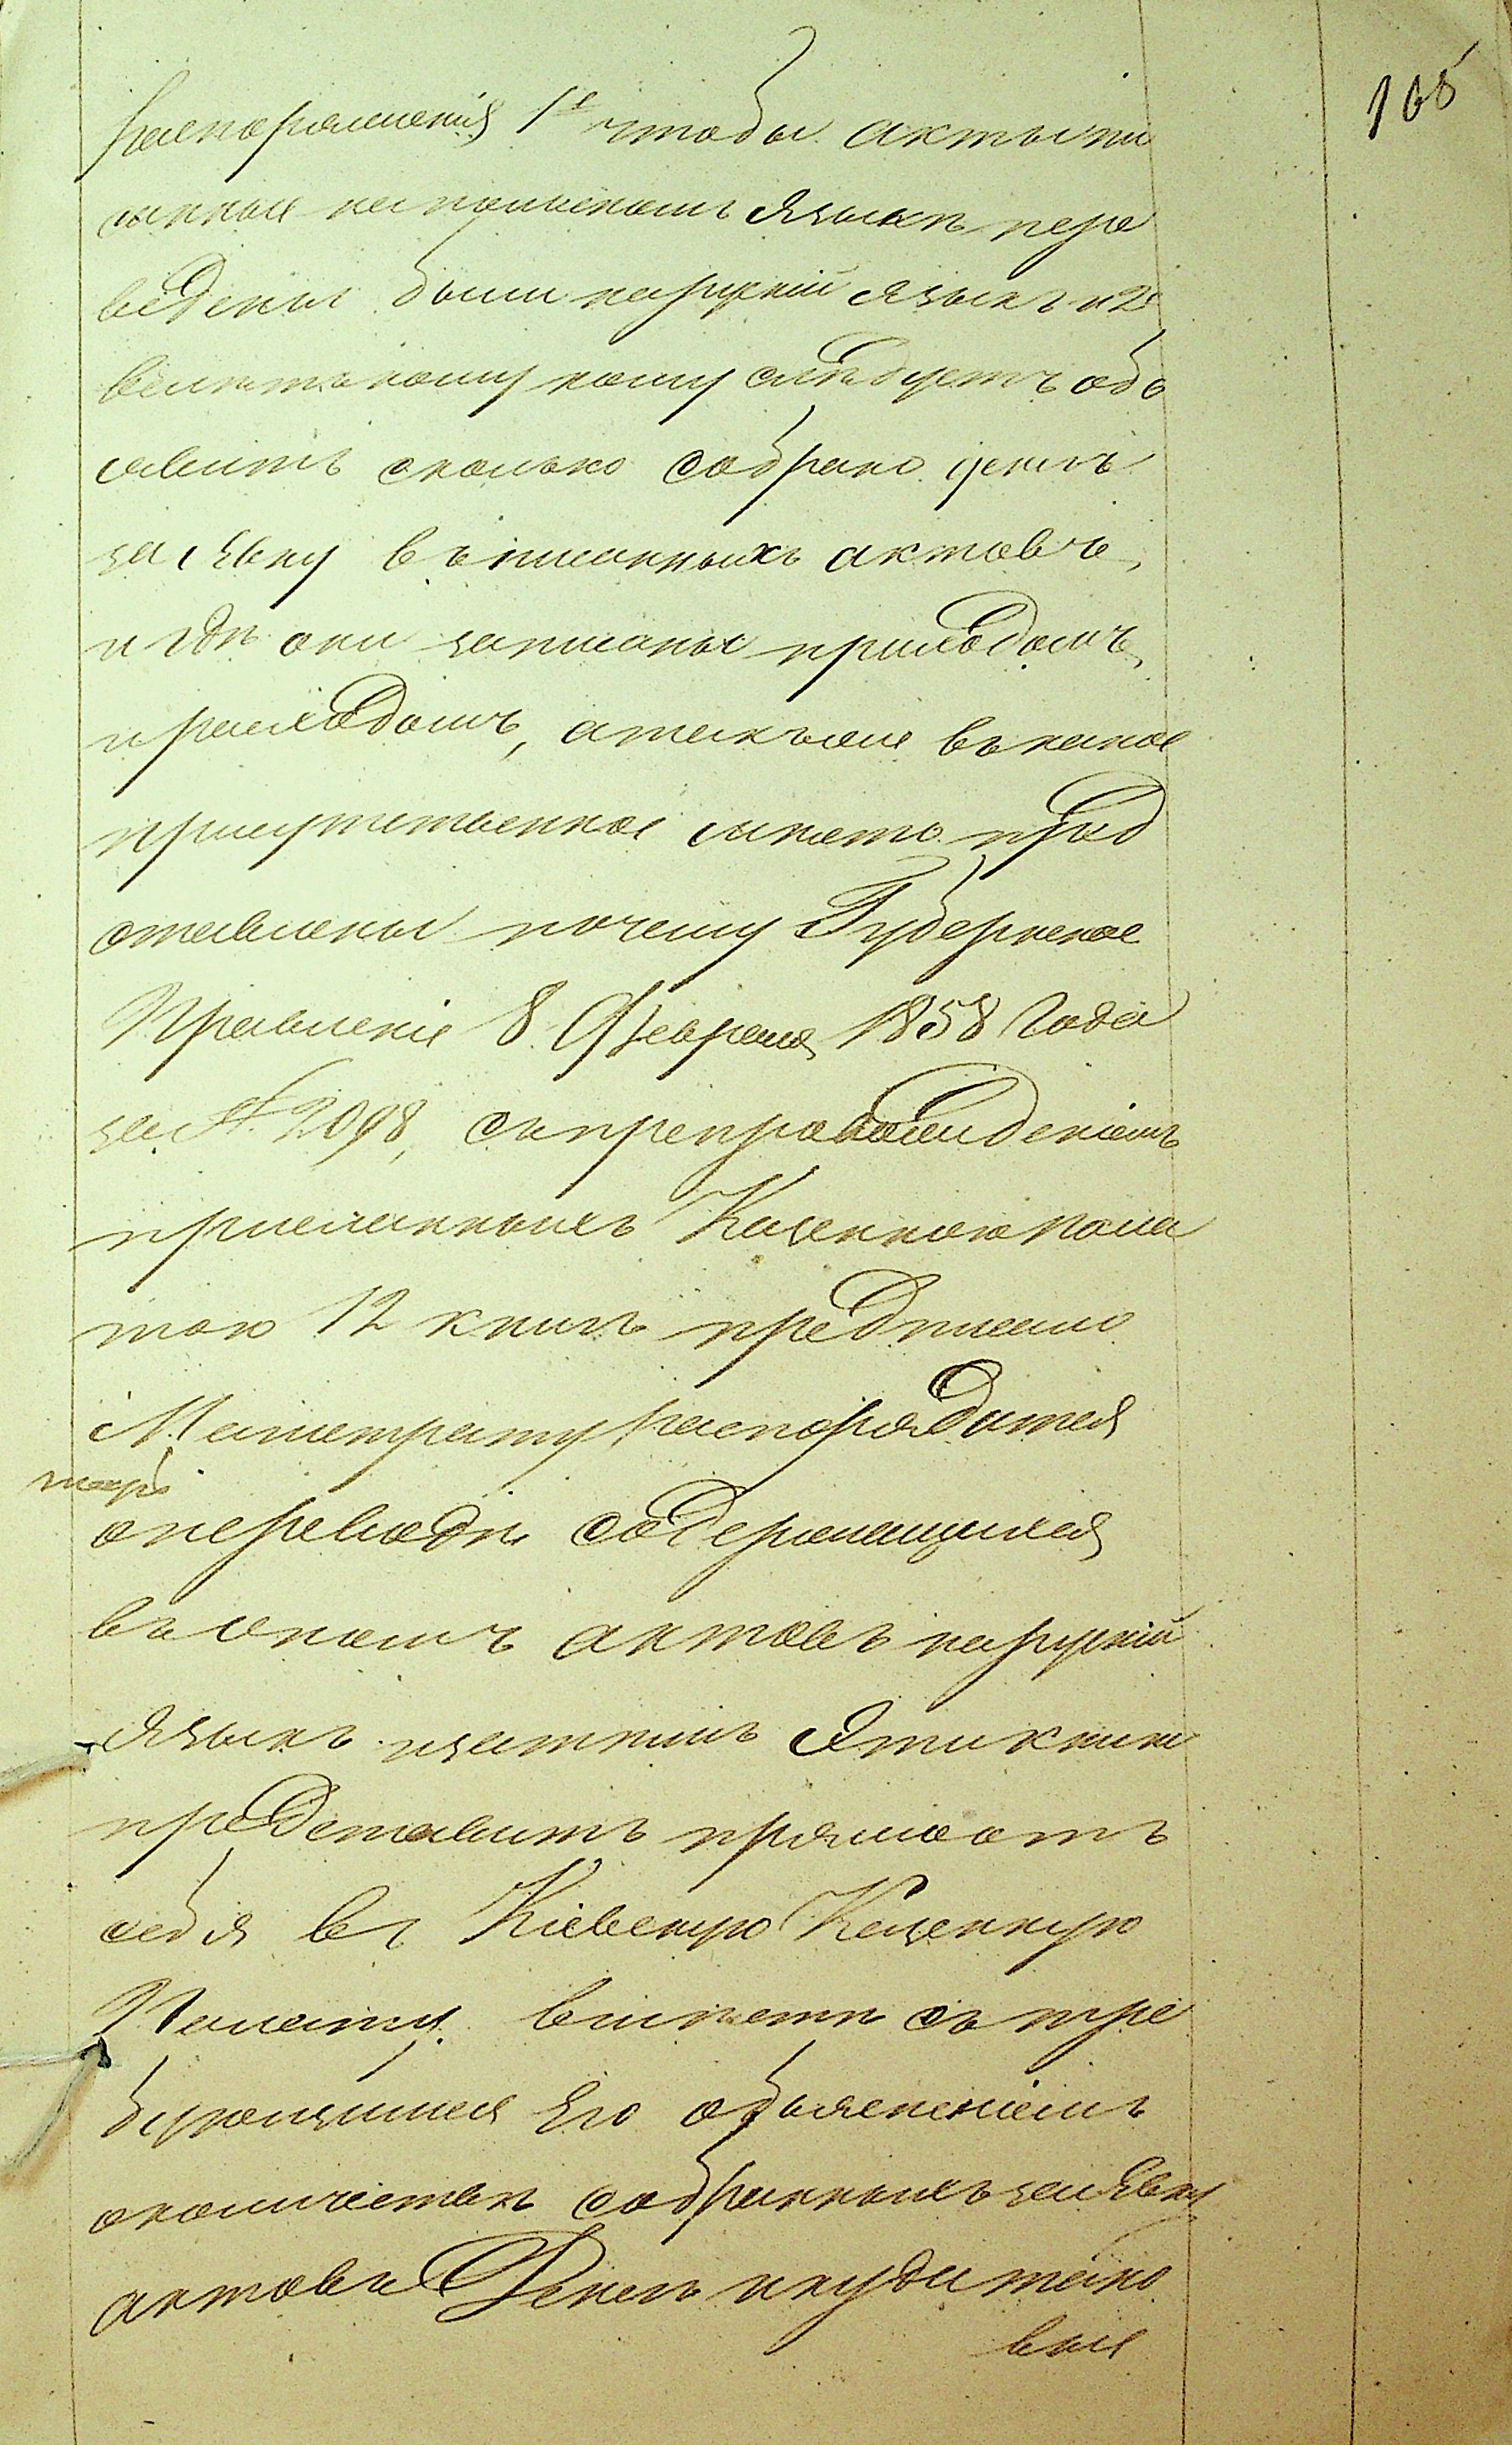 105
распоряженія 1е чтобы акты пи
санные на польскомъ языкѣ пере
ведены были на рускій языкъ и 2е
велѣть кому кому слѣдуетъ объ
явить сколько собрано денегъ
за явку въ писанныхъ актовъ,
и гдѣ они записаны приходомъ,
и расходомъ, а также въ какое
присутственное мѣсто пред
ставлены почему Губернское
Правленіе 8 Февраля 1858 года
за № 2098, съ препровожденіемъ
присланныхъ Казенною Пала
тою 12 книгъ предписало
Магистрату распорядится
о переводѣ содержащихся
въ ономъ актовъ на рускій
языкъ и затѣмъ эти книги
представить прямо отъ
себя въ Кіевскую Казенную
Палату вмѣстѣ съ тре
бующимся Его объясненіемъ
о количествѣ собранныхъ за явку
актовъ денегъ и куда тако
вые